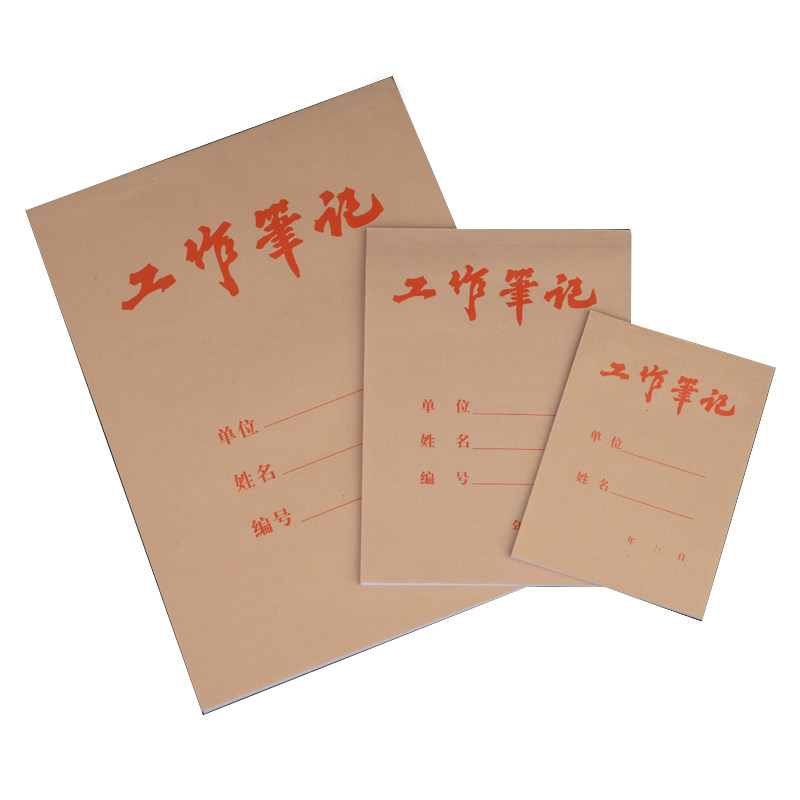 工作筆记
单位
姓名
编号
工作筆记
单 位
姓 名
编 号
工作筆记
单 位
姓 名
年 月 日